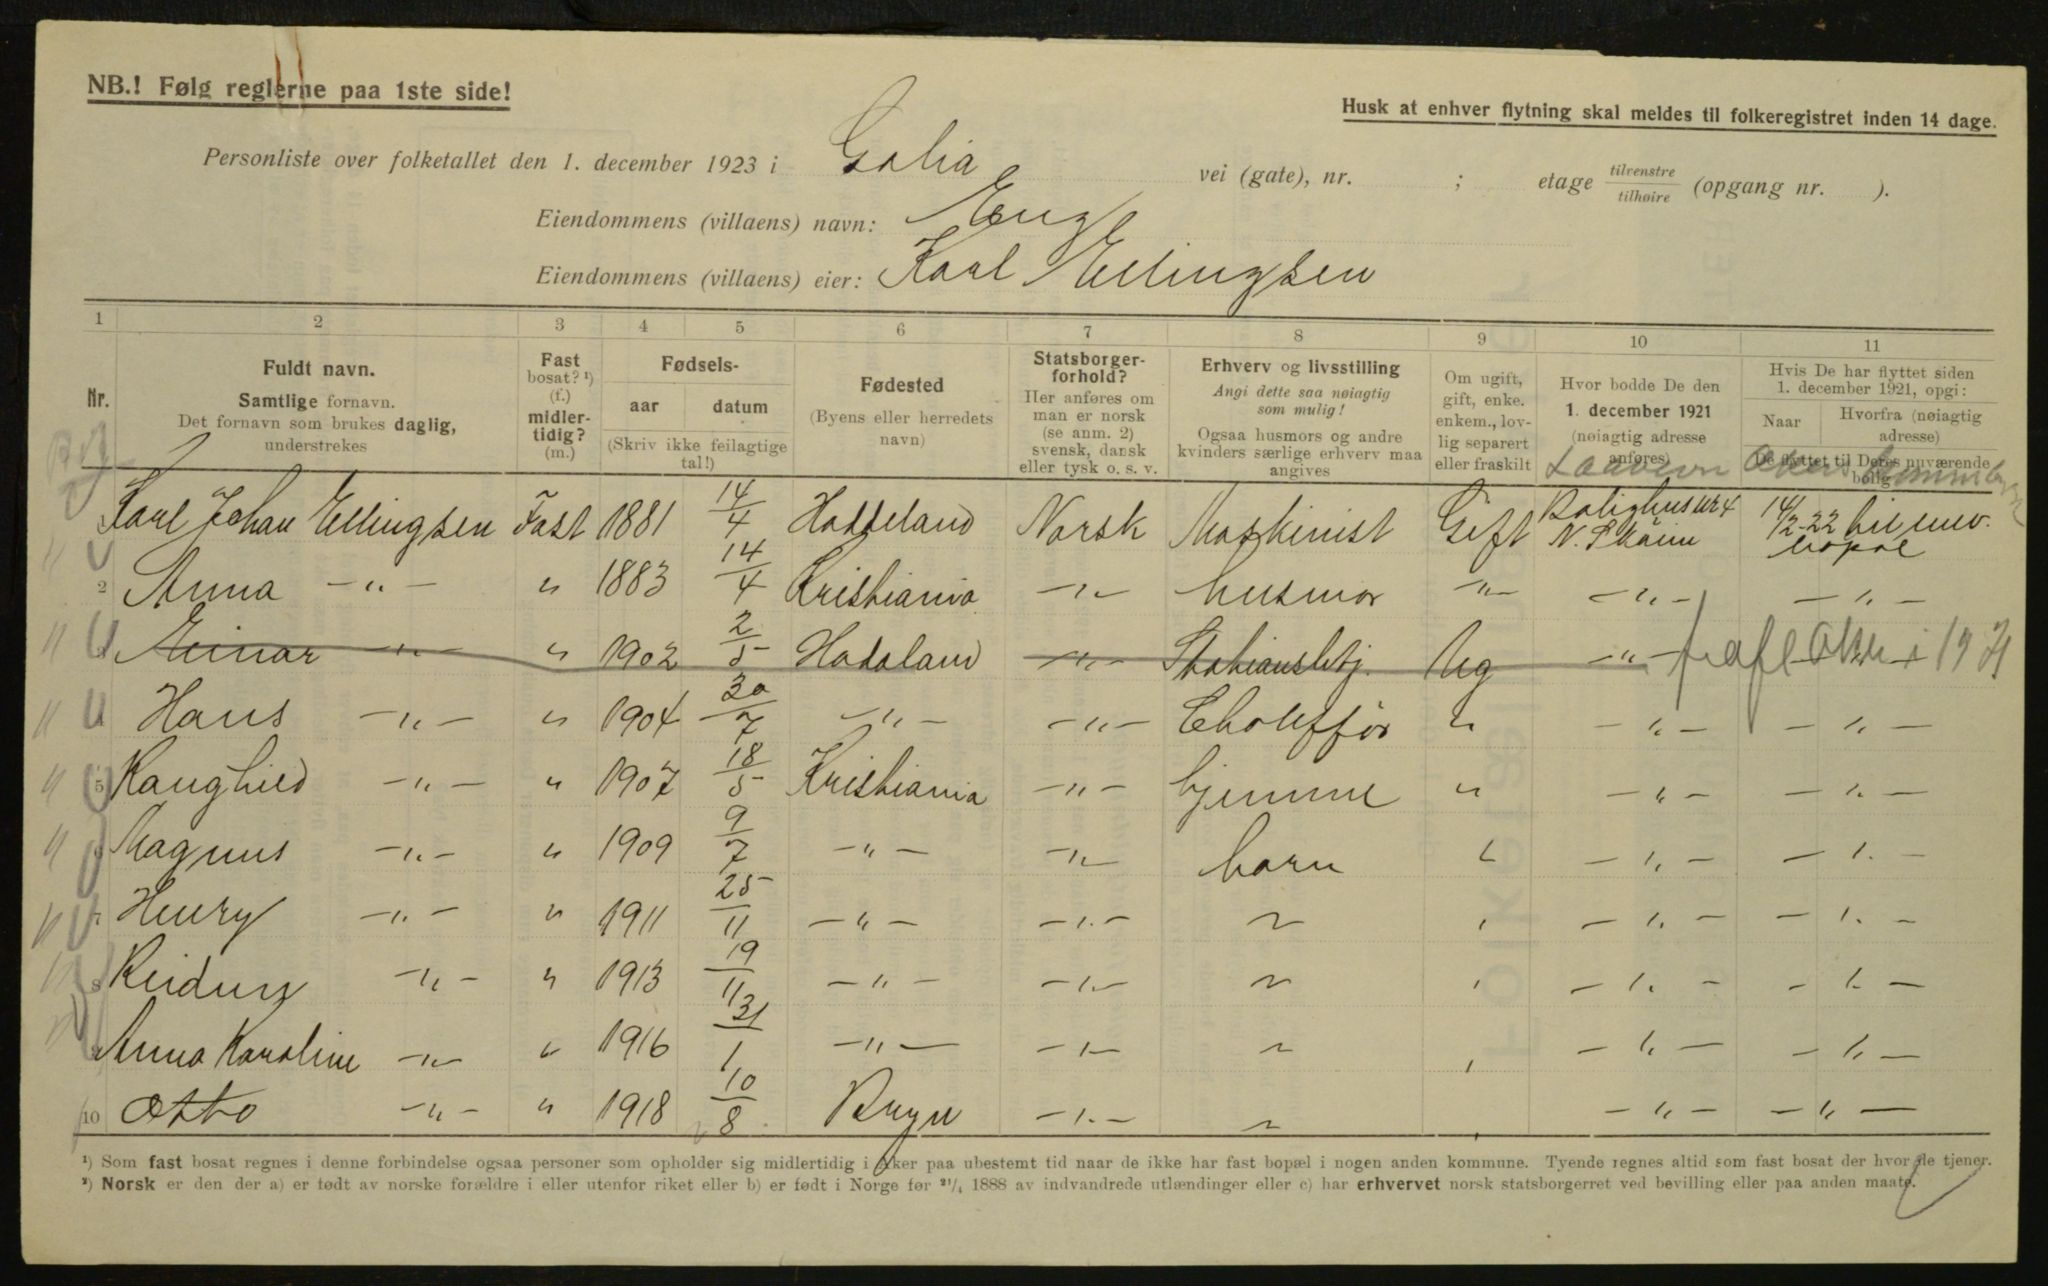 NB.! Følg reglerne paa 1ste side!
Husk at enhver flytning skal meldes til folkeregistret inden 14 dage.
Personliste over folketallet den 1. december 1923 i Golia vei (gate), nr. ; etage tilvenstre tilhøire (opgang nr. ).
Eiendommens (villaens) navn: Eng
Eiendommens (villaens) eier: Karl Ellingsen
1 2 3 4 5 6 7 8 9 10 11
Nr.
Fuldt navn.
Samtlige fornavn.
Det fornavn som brukes daglig,
understrekes
Fast
bosat? ¹)
(f.)
midler-
tidig?
(m.)
Fødsels-
aar datum
(Skriv ikke feilagtige
tal!)
Fødested
(Byens eller herredets
navn)
Statsborger-
forhold?
Her anføres om
man er norsk
(se anm. 2)
svensk, dansk
eller tysk o. s. v.
Erhverv og livsstilling
Angi dette saa nøiagtig
som mulig!
Ogsaa husmors og andre
kvinders særlige erhverv maa
angives
Om ugift,
gift, enke.
enkem., lov-
lig separert
eller fraskilt
Hvor bodde De den
1. december 1921
(nøiagtig adresse
anføres)
Hvis De har flyttet siden
1. december 1921, opgi:
Naar Hvorfra (nøiagtig
adresse)
De flyttet til Deres nuværende
bolig
Karl Johan Ellingsen Fast 1881 14/4 Haddeland Norsk Maskinist Gift Bolighus nr 4 N. Skøien 14/2-22 hil nuv. bopæl
2 Anna -"- " 1883 14/4 Kristiania -"- husmor -"- -"- -"-
3 Einar -"- " 1902 2/5 Hadeland -"- Ug -"- 1921
4 Hans -"- " 1904 30/7 -"- -"- Choufför " -"- -"-
5 Ranghild -"- " 1907 18/5 Kristiania -"- hjemme " -"- -"-
6 Magnus -"- " 1909 9/7 -"- -"- barn " -"- -"-
7 Henry -"- " 1911 25/11 -"- -"- " -"- -"-
8 Reidun -"- " 1913 19/11 -"- -"- " -"- -"-
9 Anna Karoline -"- " 1916 31/1 -"- -"- " -"- -"-
10 Otto -"- " 1918 10/8 Bryn -"- " -"- -"-
¹) Som fast bosat regnes i denne forbindelse ogsaa personer som opholder sig midlertidig i Aker paa ubestemt tid naar de ikke har fast bopæl i nogen anden kommune. Tyende regnes altid som fast bosat der hvor de tjener.
²) Norsk er den der a) er født av norske forældre i eller utenfor riket eller b) er født i Norge før ²¹/₄ 1888 av indvandrede utlændinger eller c) har erhvervet norsk statsborgerret ved bevilling eller paa anden maate.